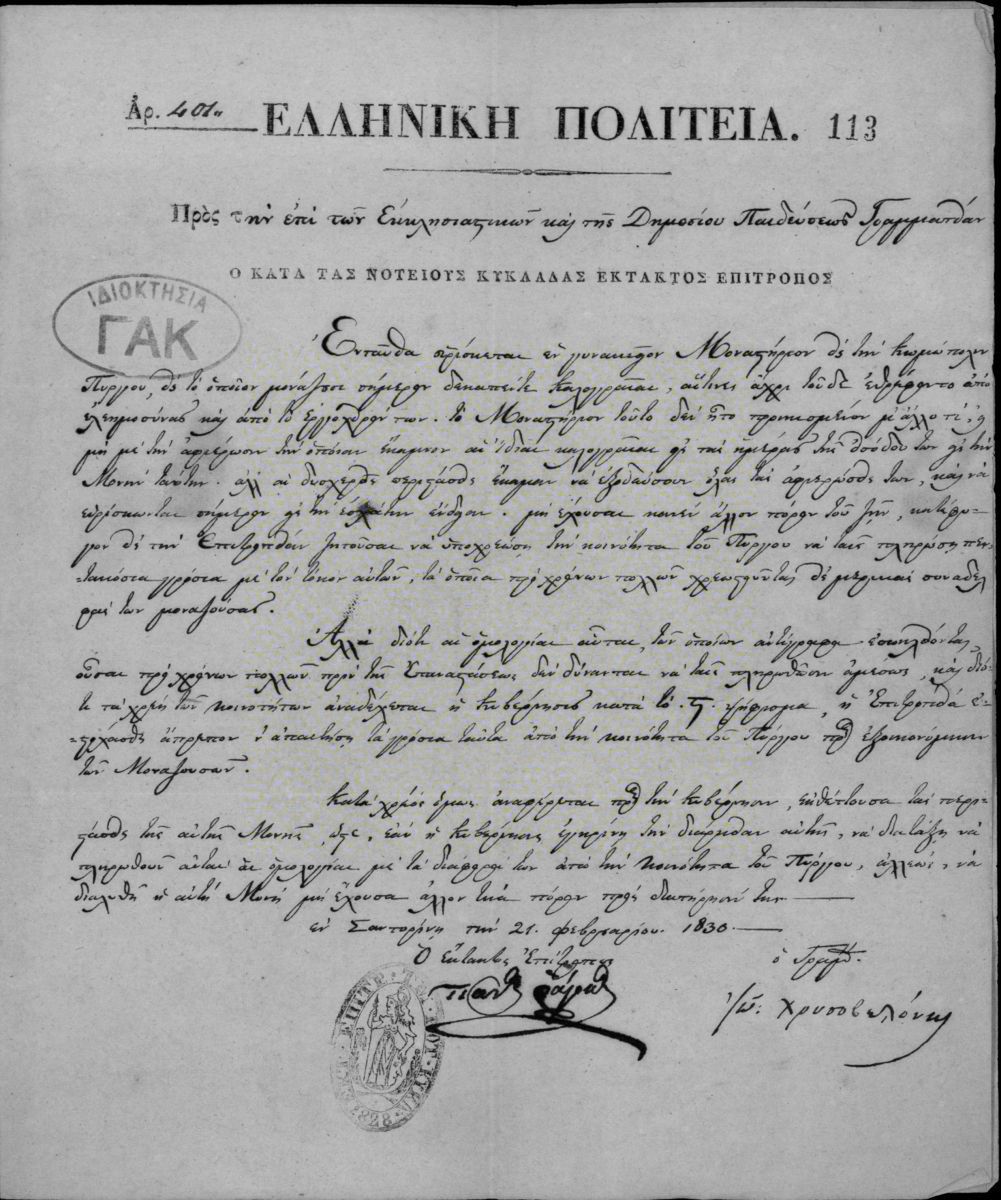 Ἀρ. 401. ΕΛΛΗΝΙΚΗ ΠΟΛΙΤΕΙΑ. 113
Πρὸς τὴν ἐπὶ τῶν Ἐκκλησιαστικῶν καὶ τῆς Δημοσίου Παιδεύσεως Γραμματείαν
Ο ΚΑΤΑ ΤΑΣ ΝΟΤΕΙΟΥΣ ΚΥΚΛΑΔΑΣ ΕΚΤΑΚΤΟΣ ΕΠΙΤΡΟΠΟΣ
ΙΔΙΟΚΤΗΣΙΑ
ΓΑΚ
Ἐνταῦθα εὑρίσκεται ἓν γυναικεῖον Μοναστήριον εἰς τὴν κωμώπολιν
Πύργου, εἰς τὸ ὁποῖον μονάζουσι σήμερον δεκαπέντε καλογραῖαι, αἵτινες ἄχρι τοῦδε ἐτρέφοντο ἀπὸ
ἐλεημοσύνας καὶ ἀπὸ τὸ ἐργόχειρόν των. τὸ Μοναστήριον τοῦτο δὲν ἦτο προικισμένον μὲ ἄλλο τι, εἰ
μὴ μὲ τὴν ἀφιέρωσιν τὴν ὁποίαν ἔκαμνον αἱ ἴδιαι καλογραῖαι εἰς τὰς ἡμέρας τῆς εἰσόδου των εἰς τὴν
Μονὴν ταύτην. ἀλλ' αἱ δυσχερεῖς περιστάσεις ἔκαμαν νὰ ἐξοδεύσουν ὅλας τὰς ἀφιερώσεις των, καὶ νὰ
εὑρίσκωνται σήμερον εἰς τὴν ἐσχάτην ἔνδειαν. μὴ ἔχουσαι κανὲν ἄλλον πόρον τοῦ ζῆν, κατέφυ-
γον εἰς τὴν Ἐπιτροπείαν ζητοῦσαι νὰ ὑποχρεώσῃ τὴν κοινότητα τοῦ Πύργου νὰ ταῖς πληρώσῃ πεν-
τακόσια γρόσια μὲ τὸν τόκον αὐτῶν, τὰ ὁποῖα πρὸ χρόνων πολλῶν χρεωστοῦνται εἰς μερικὰς συναδελ-
φάς των μοναζούσας.
Ἀλλὰ διότι αἱ ὁμολογίαι αὗται, τῶν ὁποίων ἀντίγραφα ἐσωκλείονται,
οὖσαι πρὸ χρόνων πολλῶν πρὶν τῆς Ἐπαναστάσεως δὲν δύνανται νὰ ταῖς πληρωθῶσιν ἀμέσως, καὶ διό-
τι τὰ χρέη τῶν κοινοτήτων ἀναδέχεται ἡ Κυβέρνησις κατὰ τὸ ψήφισμα, ἡ Ἐπιτροπεία ἐ-
στοχάσθη ἄπρεπον ν' ἀπαιτήσῃ τὰ γρόσια ταῦτα ἀπὸ τὴν κοινότητα τοῦ Πύργου πρὸς ἐξοικονόμησιν
τῶν Μοναζουσῶν.
Κατὰ χρέος ὅμως ἀναφέρεται πρὸς τὴν Κυβέρνησιν, ἐκθέτουσα τὰς περι-
στάσεις τῆς αὐτῆς Μονῆς, ὥστε, ἐὰν ἡ Κυβέρνησις ἐγκρίνῃ τὴν διάρκειαν αὐτῆς, νὰ διατάξῃ νὰ
πληρωθοῦν αὐταὶ αἱ ὁμολογίαι μὲ τὰ διάφορά των ἀπὸ τὴν κοινότητα τοῦ Πύργου, ἀλλέως, νὰ
διαλυθῇ ἡ αὐτὴ Μονὴ μὴ ἔχουσα ἄλλον τινὰ πόρον πρὸς διατήρησίν της
ἐν Σαντορίνῃ τὴν 21. φεβρουαρίου. 1830.
Ὁ Ἔκτακτος Ἐπίτροπος
ὁ Γραμμ.
Ἰω: Χρυσοβελόνης
1828